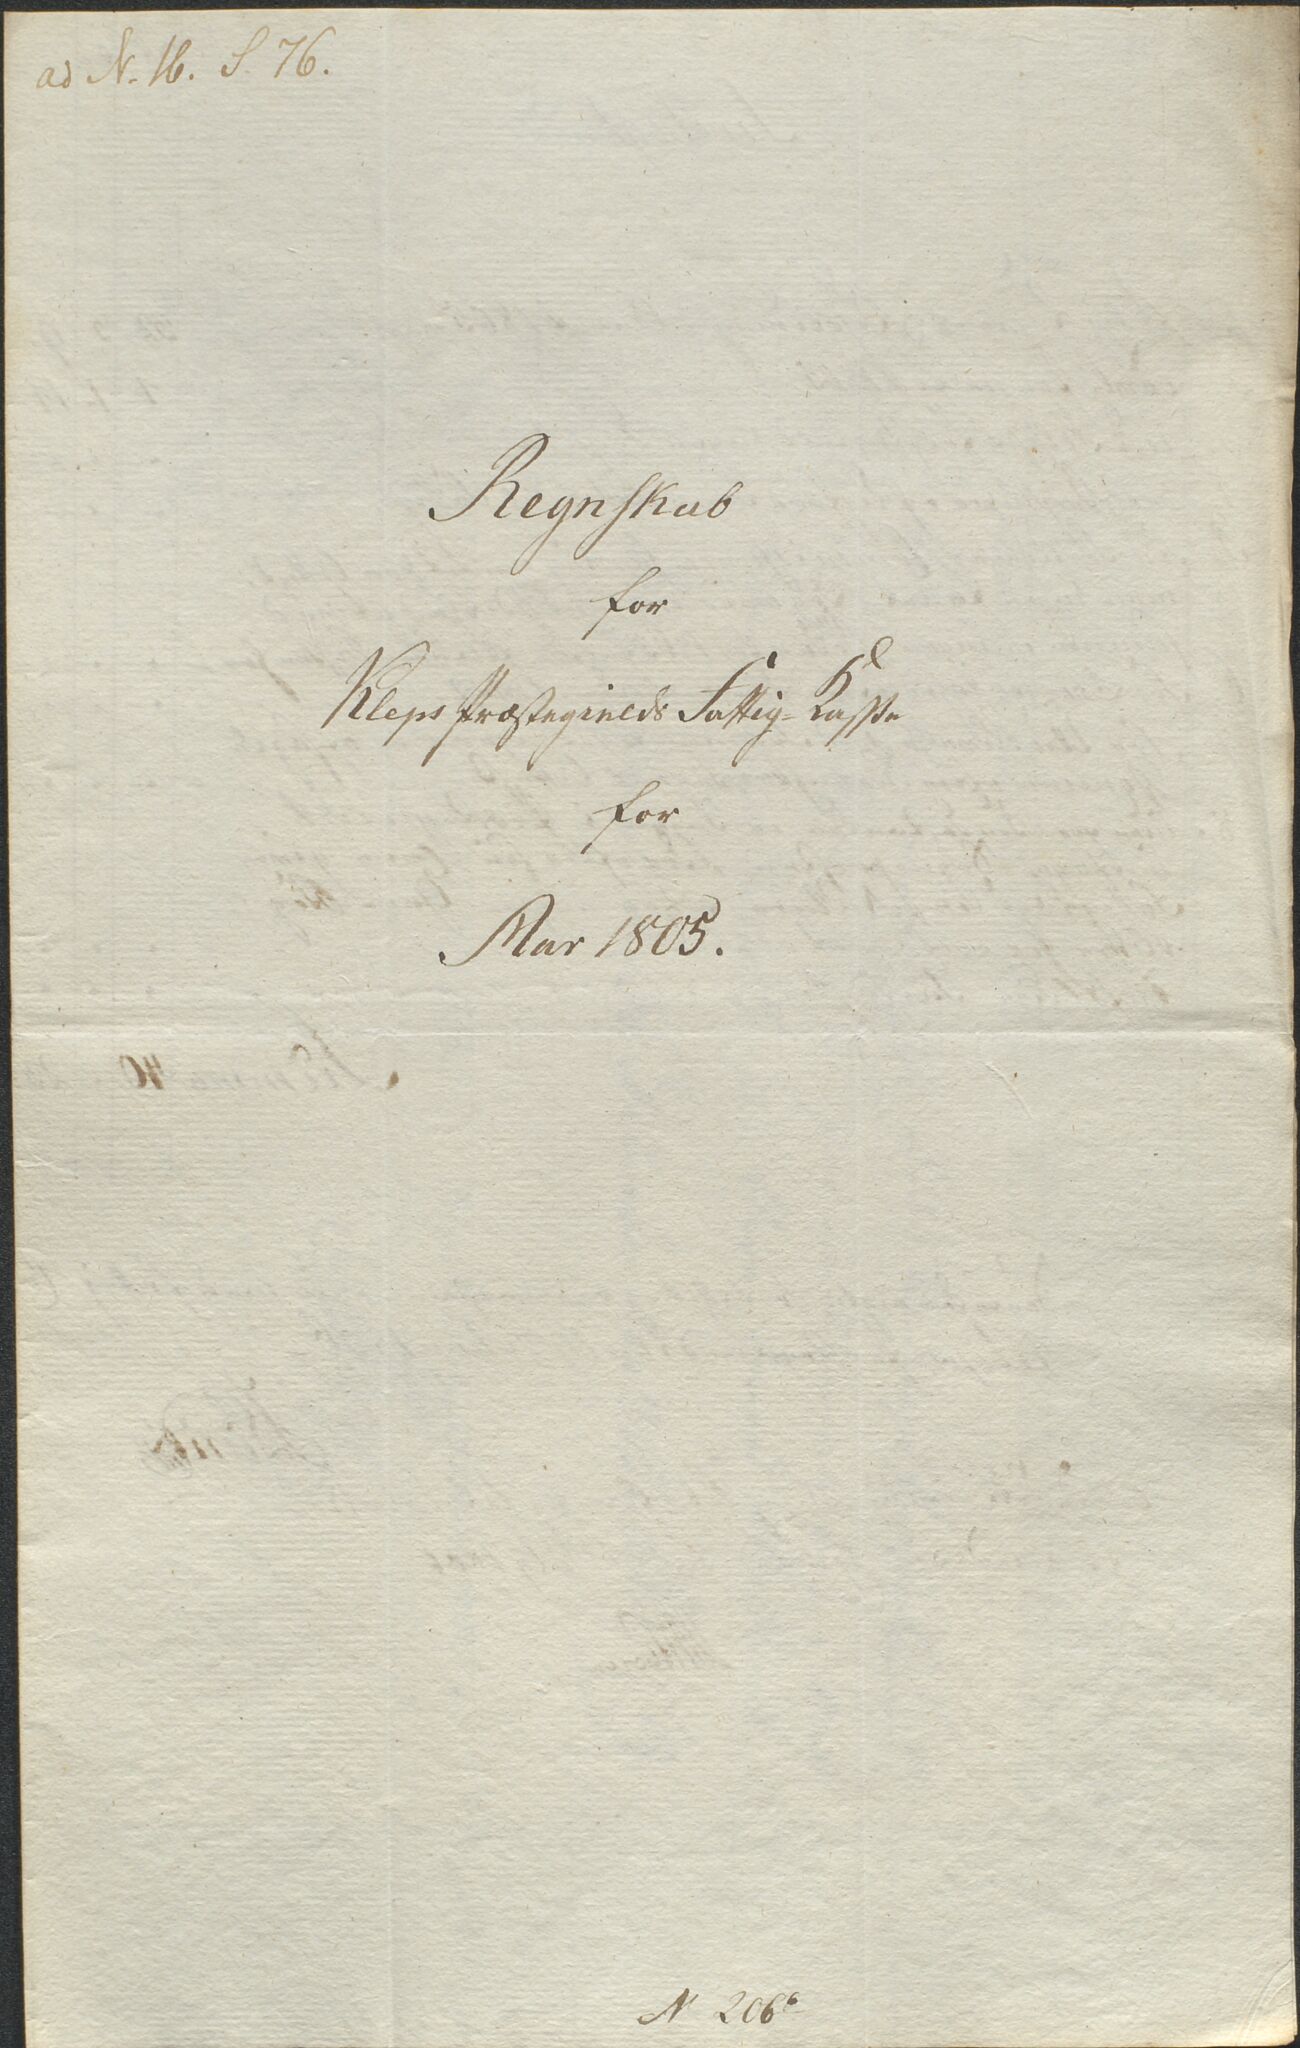 ad N. 16. S. 76.
Regnskab
for
Kleps Præstegields Fattig-Kasse
for
Aar 1805.
N 206